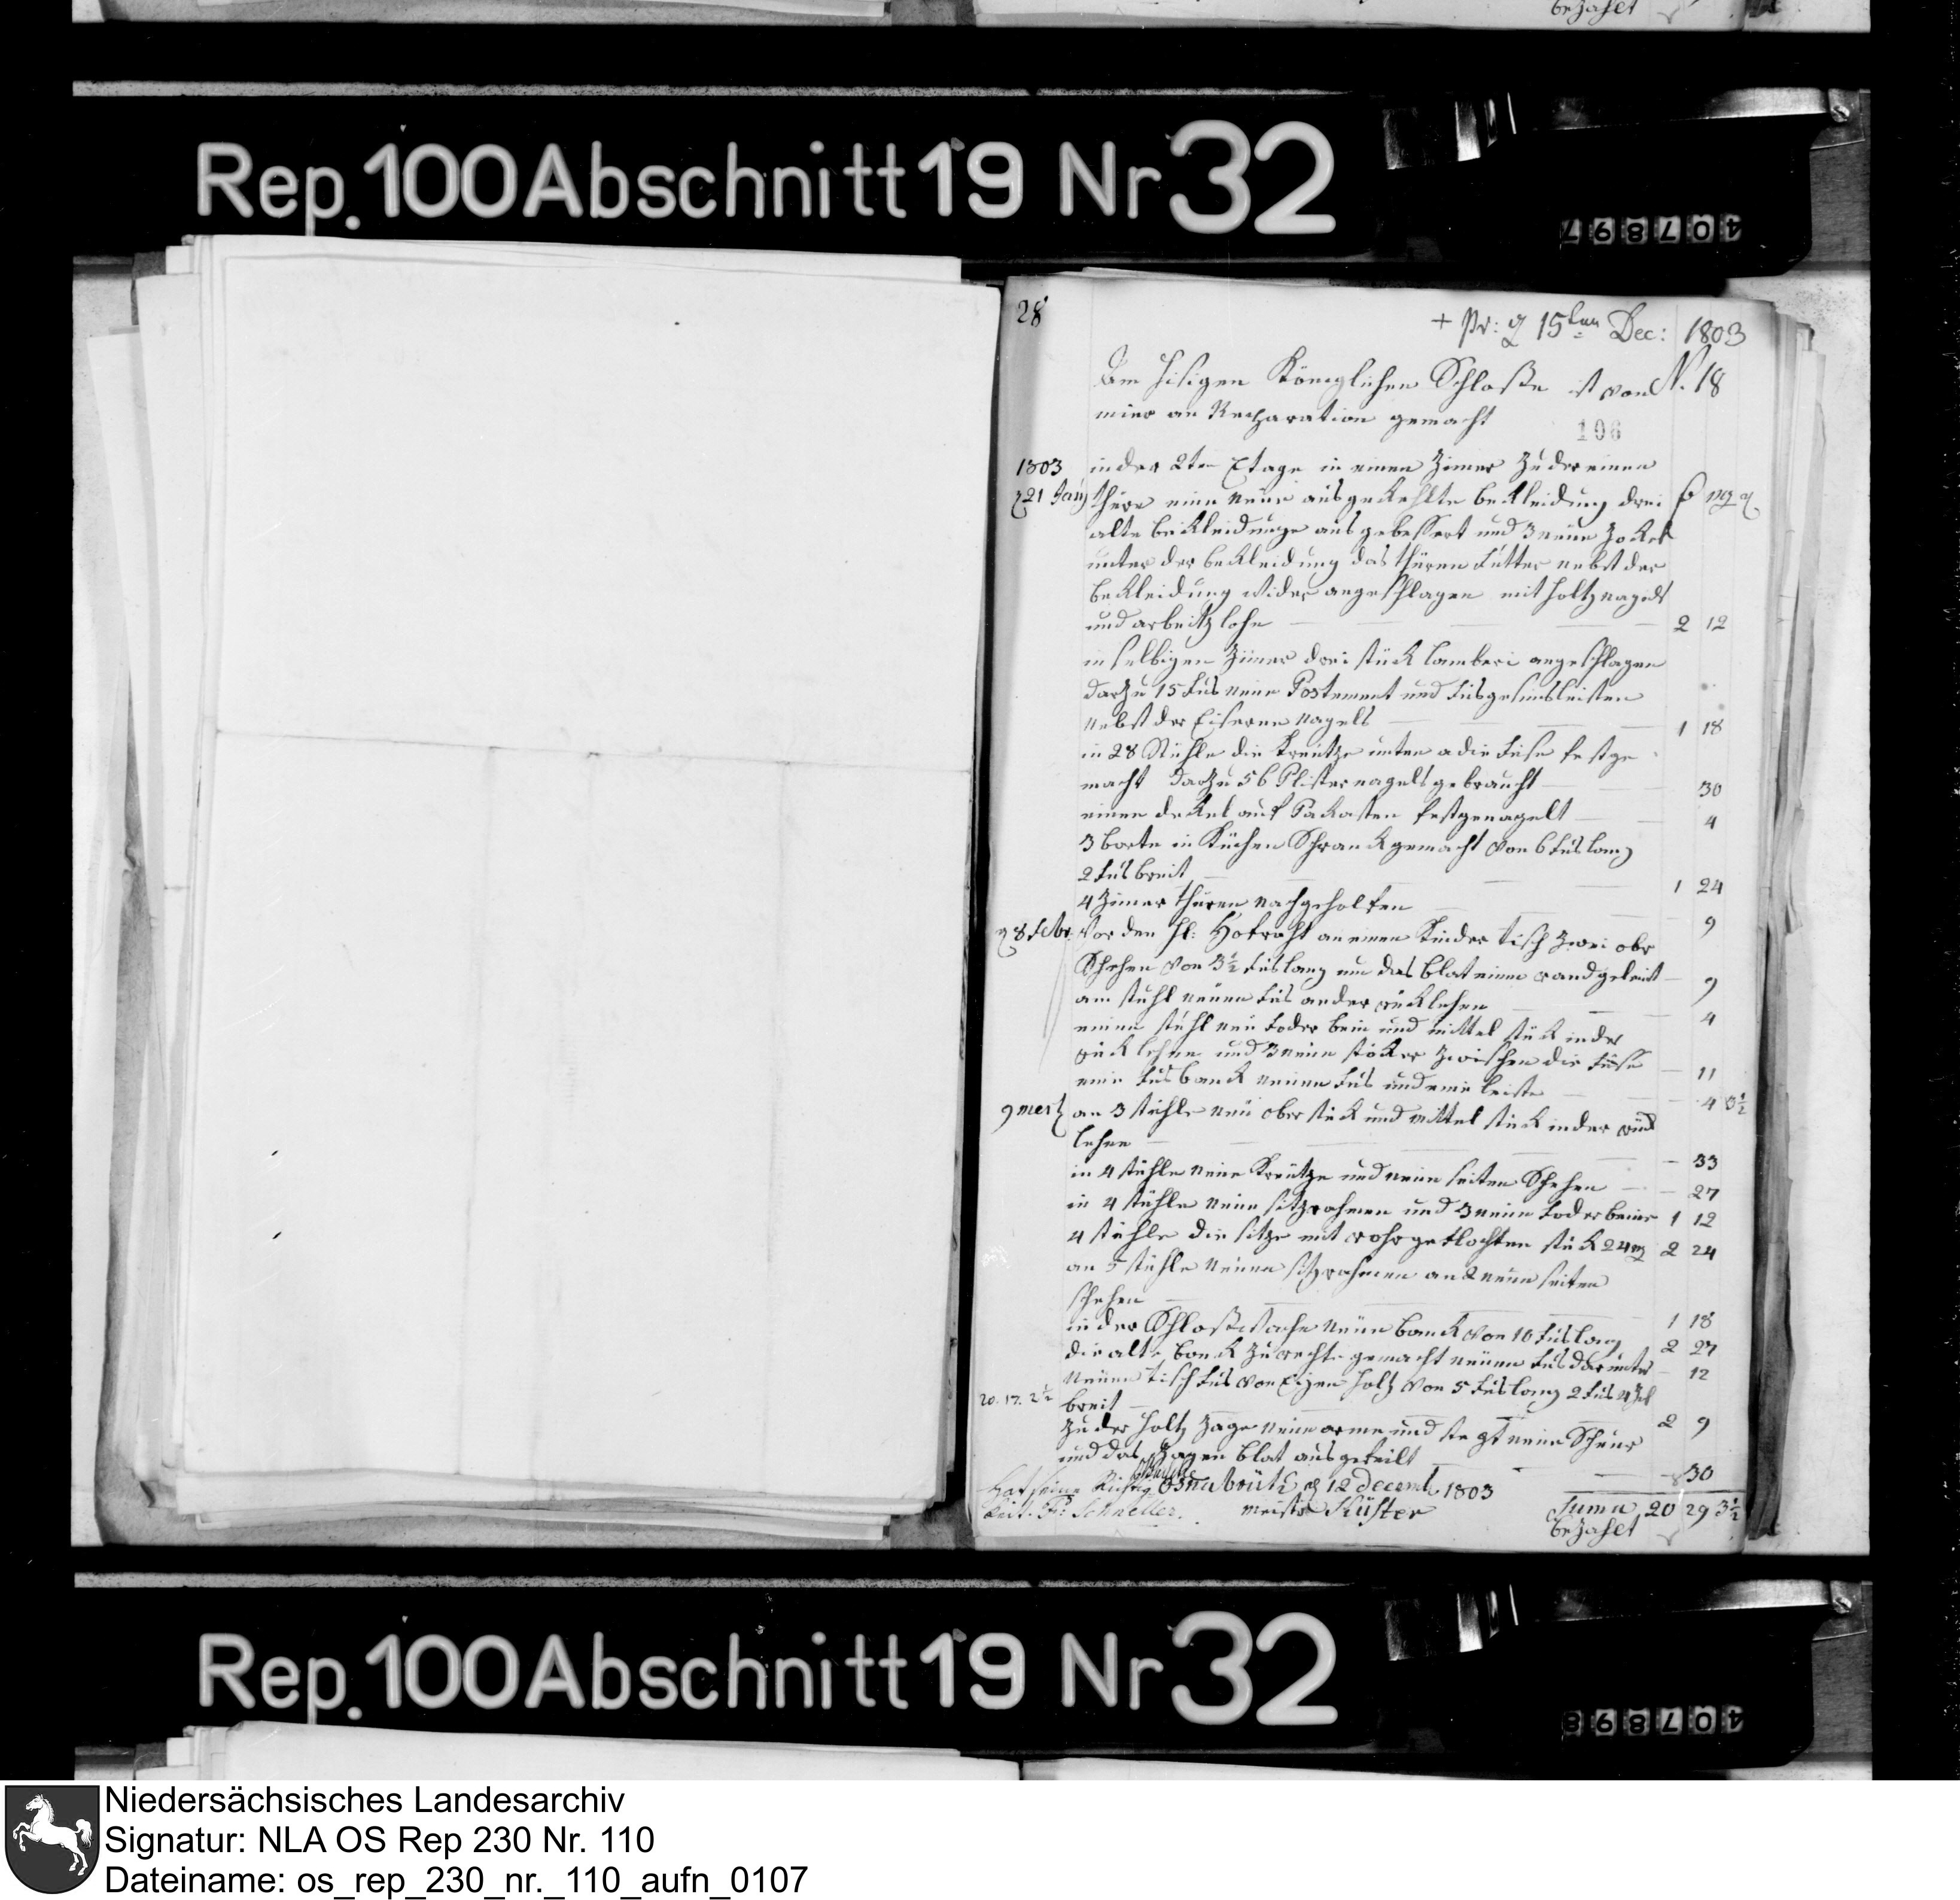 bezahlt
Rep. 100 Abschnitt 19 Nr 32
407897
28
+ Pr: d 15ten Dec: 1803
Am hisigen Königlichen Schloße ist von N. 18
mier an Recharation gemacht
106
1803 in der 2ten Etage in einen Zimer zu der einen
d 21 Janꝫ thüre eine neue ausgekehlte bekleidung drei
alte bekleidunge ausgebessert und 3 neue Zokel
unter der bekleidung das thüren futter nebst der
bekleidung wider angeschlagen mit holtz nagels
und arbeitzlohn 2 12
in selbigen Zimer drei stük lamberi angeschlagen
darzu 15 fus neue Postement und fusgesimsleisten
nebst der Eiserne nagels 1 18
in 28 Stühle die Kreutze unten a die füse festge
macht darzu 56 Plister nagels gebraucht 30
einen dekel auf Pakasten festgenagelt 4
3 borte in Küchen Schrank gemacht von 6 fus lang
2 fus breit 1 24
4 Zimer thüren nachgeholfen 9
d 8 Febr: Vor den H: Hofraht an einen Kinder tisch zwei obr
Schehen von 3½ fus lang um das blat einen rand geleimt 9
am stuhl neuen fus an der rüklehen 4
einen stuhl neu foder bein und mittel stük in der
rüklehne und 3 neue stöker zwischen die füse 11
eine fusbank neuen fus und eine leiste 4 3½
9 mertz an 3 stühle neu ober stük und mittel stük in der rük
lehne 33
in 4 stühle neue Kreutze und neue seiten Schehen 27
in 4 stühle neue sitzrahmen und 3 neue foderbeine 1 12
4 stühle die sitze mit rohr geflochten stük 24 2 24
an 5 stühle neuen sitzrahmen an 2 neue seiten
schehen 1 18
in der Schloßwache neue bank von 10 fus lang 2 27
die alte bank zurechte gemacht neuen fus darunter 12
neuen tisch fus von Eigen holtz von 5 fus lang 2 fus 4 Zol
20. 17. 2½ breit 2 9
zu der holtz Zage neue arme und stegt neue Schnur
und das Zagen blat ausgefeilt 30
hat seine Richtig
Osnabrük d 12 Decemb 1803
Fr: Schneller.
meister Küster
Suma 20 29 3½
bezahlt
Rep. 100 Abschnitt 19 Nr 32
407898
Niedersächsisches Landesarchiv
Signatur: NLA OS Rep 230 Nr. 110
Dateiname: os_rep_230_nr._110_aufn_0107